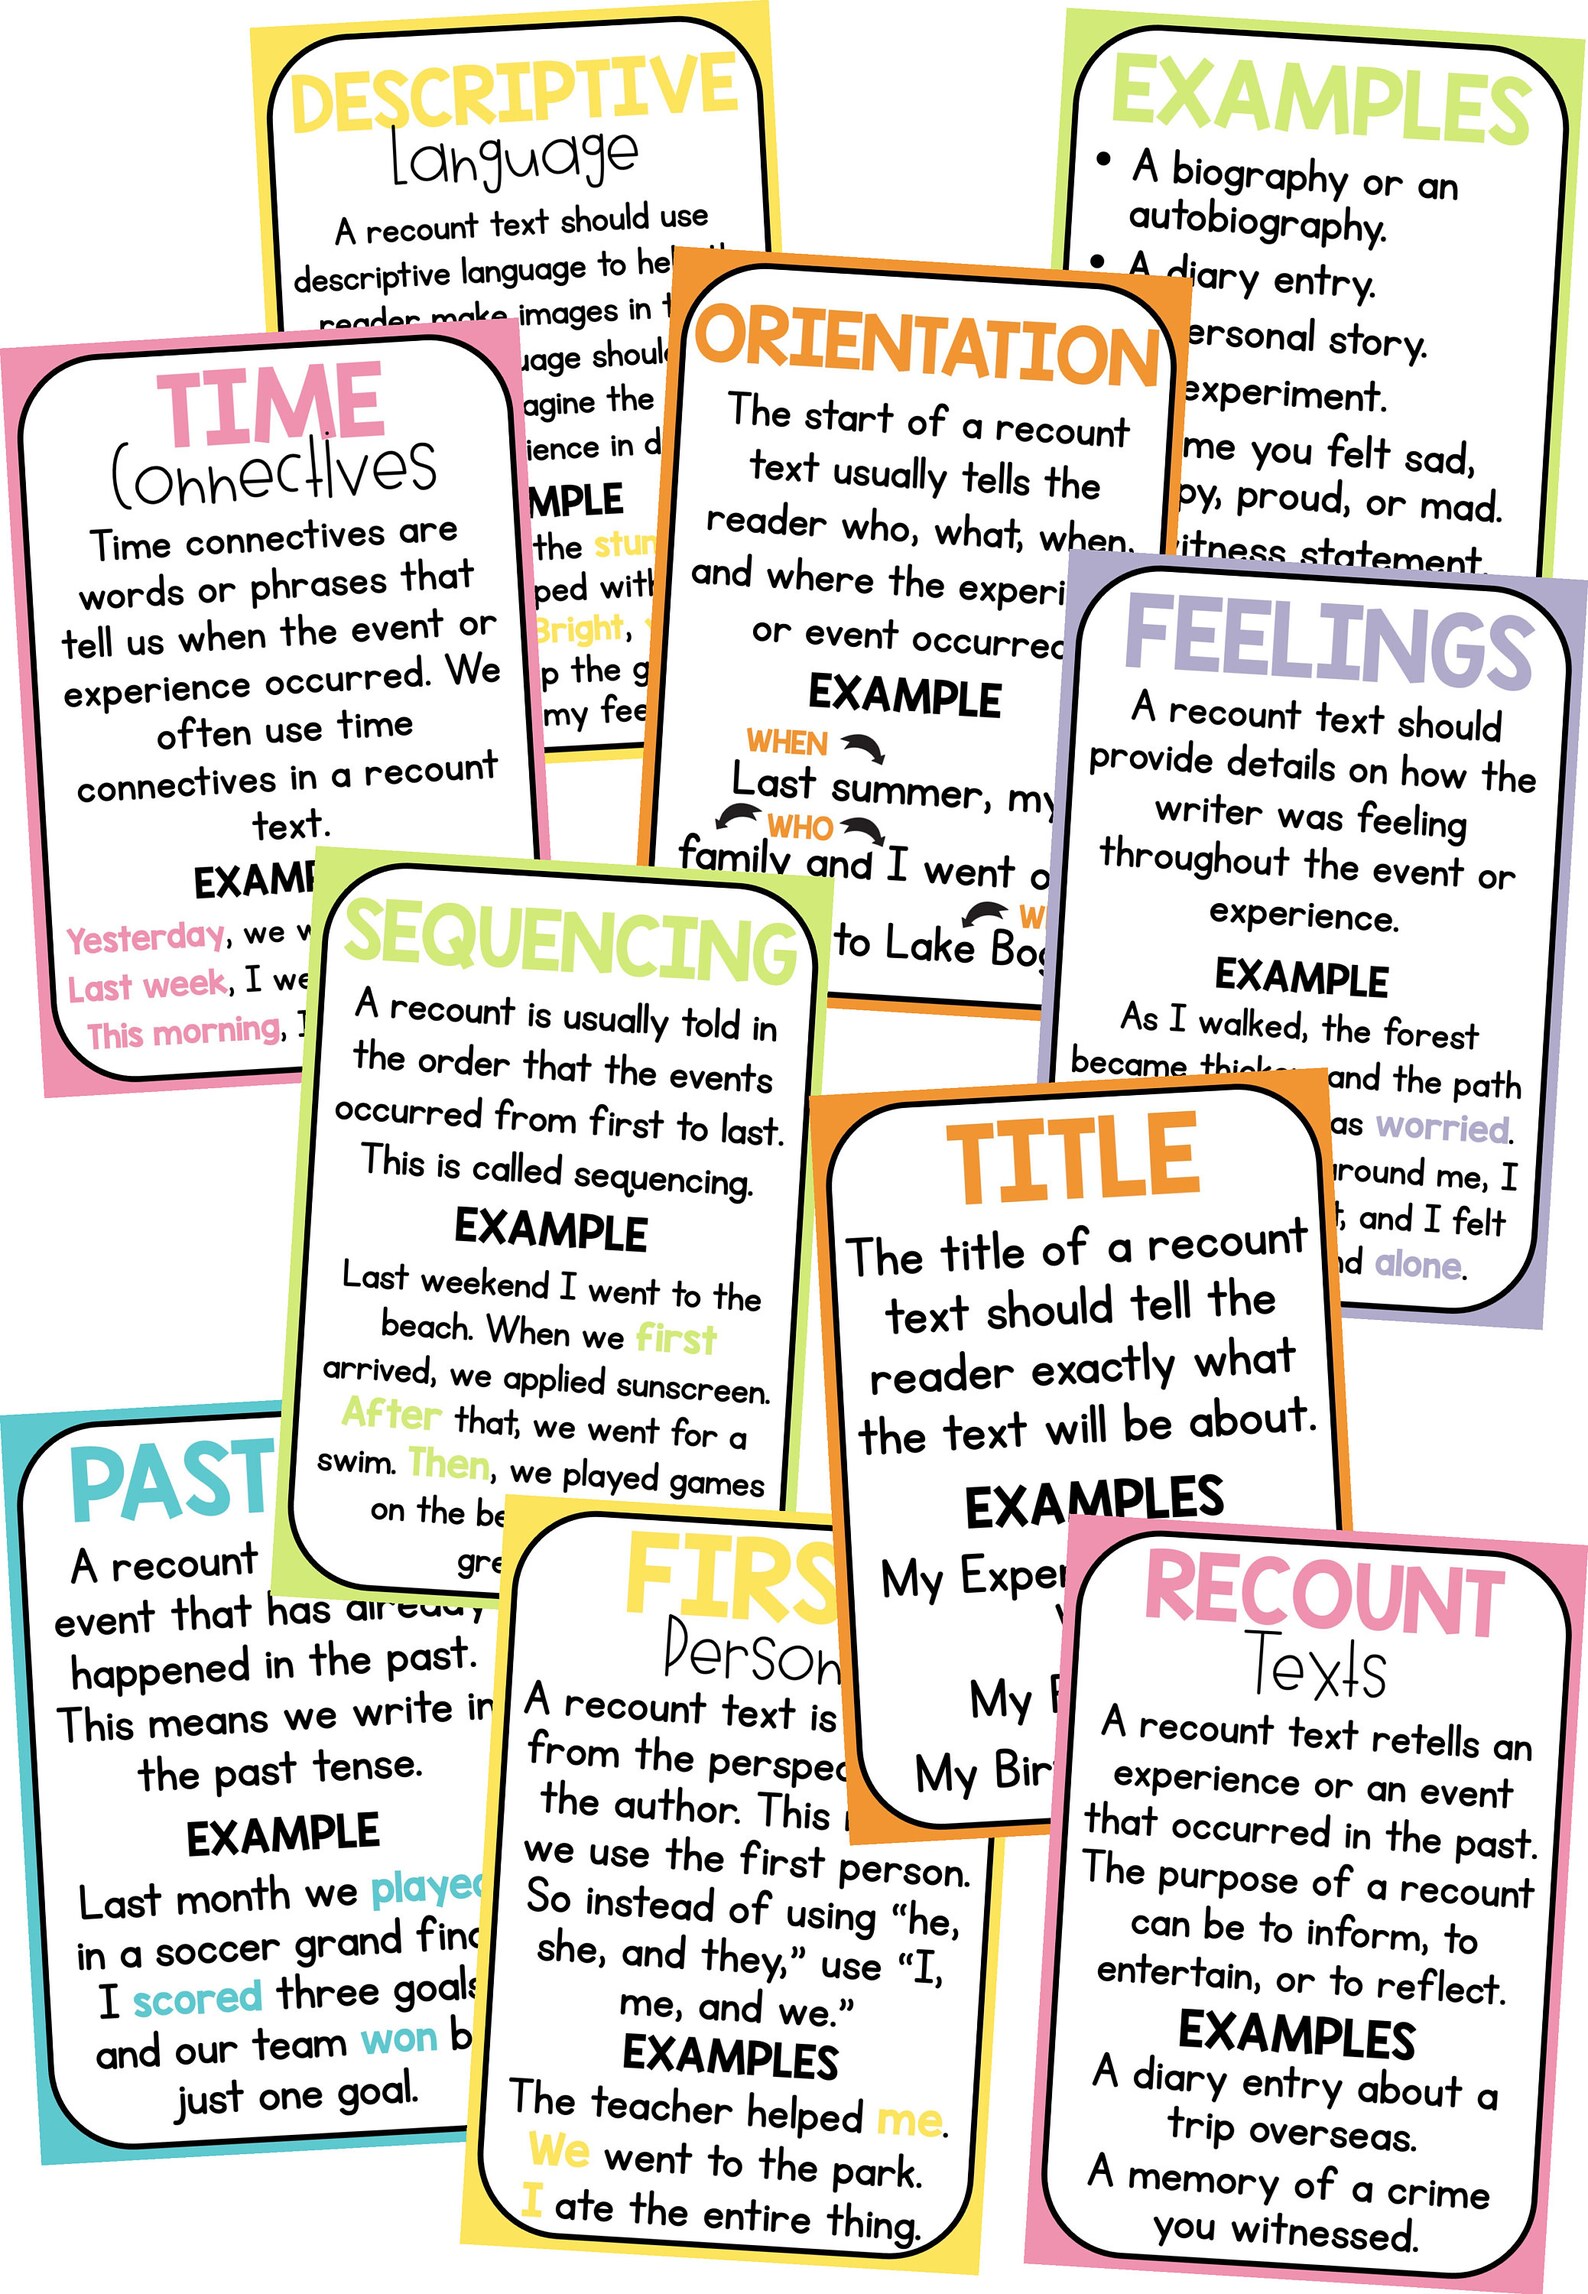 DESCRIPTIVE
Language
A recount text should use
descriptive language to
reader make images in
should
the
in
the
with
Bright,
the
my
EXAMPLES
• A biography or an
autobiography.
• A diary entry.
personal story.
experiment.
you felt sad,
proud, or mad.
witness statement.
TIME
Connectives
Time connectives are
words or phrases that
tell us when the event or
experience occurred. We
often use time
connectives in a recount
text.
Yesterday, we
Last week, I
This morning, I
ORIENTATION
The start of a recount
text usually tells the
reader who, what, when,
and where the
or event occurred
EXAMPLE
WHEN
Last summer, my
WHO
family and I went
to Lake
FEELINGS
A recount text should
provide details on how the
writer was feeling
throughout the event or
experience.
EXAMPLE
As I walked, the forest
became and the path
worried.
around me, I
and I felt
alone.
SEQUENCING
A recount is usually told in
the order that the events
occurred from first to last.
This is called sequencing.
EXAMPLE
Last weekend I went to the
beach. When we first
arrived, we applied sunscreen.
After that, we went for a
swim. Then, we played games
on the
TITLE
The title of a recount
text should tell the
reader exactly what
the text will be about.
EXAMPLES
My
My
My
PAST
A recount
event that has already
happened in the past.
This means we write in
the past tense.
EXAMPLE
Last month we played
in a soccer grand
I scored three goals
and our team won
just one goal.
FIRST
Person
A recount text is
from the
the author. This
we use the first person.
So instead of using “he,
she, and they,” use “I,
me, and we.”
EXAMPLES
The teacher helped me.
We went to the park.
I ate the entire thing.
RECOUNT
Texts
A recount text retells an
experience or an event
that occurred in the past.
The purpose of a recount
can be to inform, to
entertain, or to reflect.
EXAMPLES
A diary entry about a
trip overseas.
A memory of a crime
you witnessed.